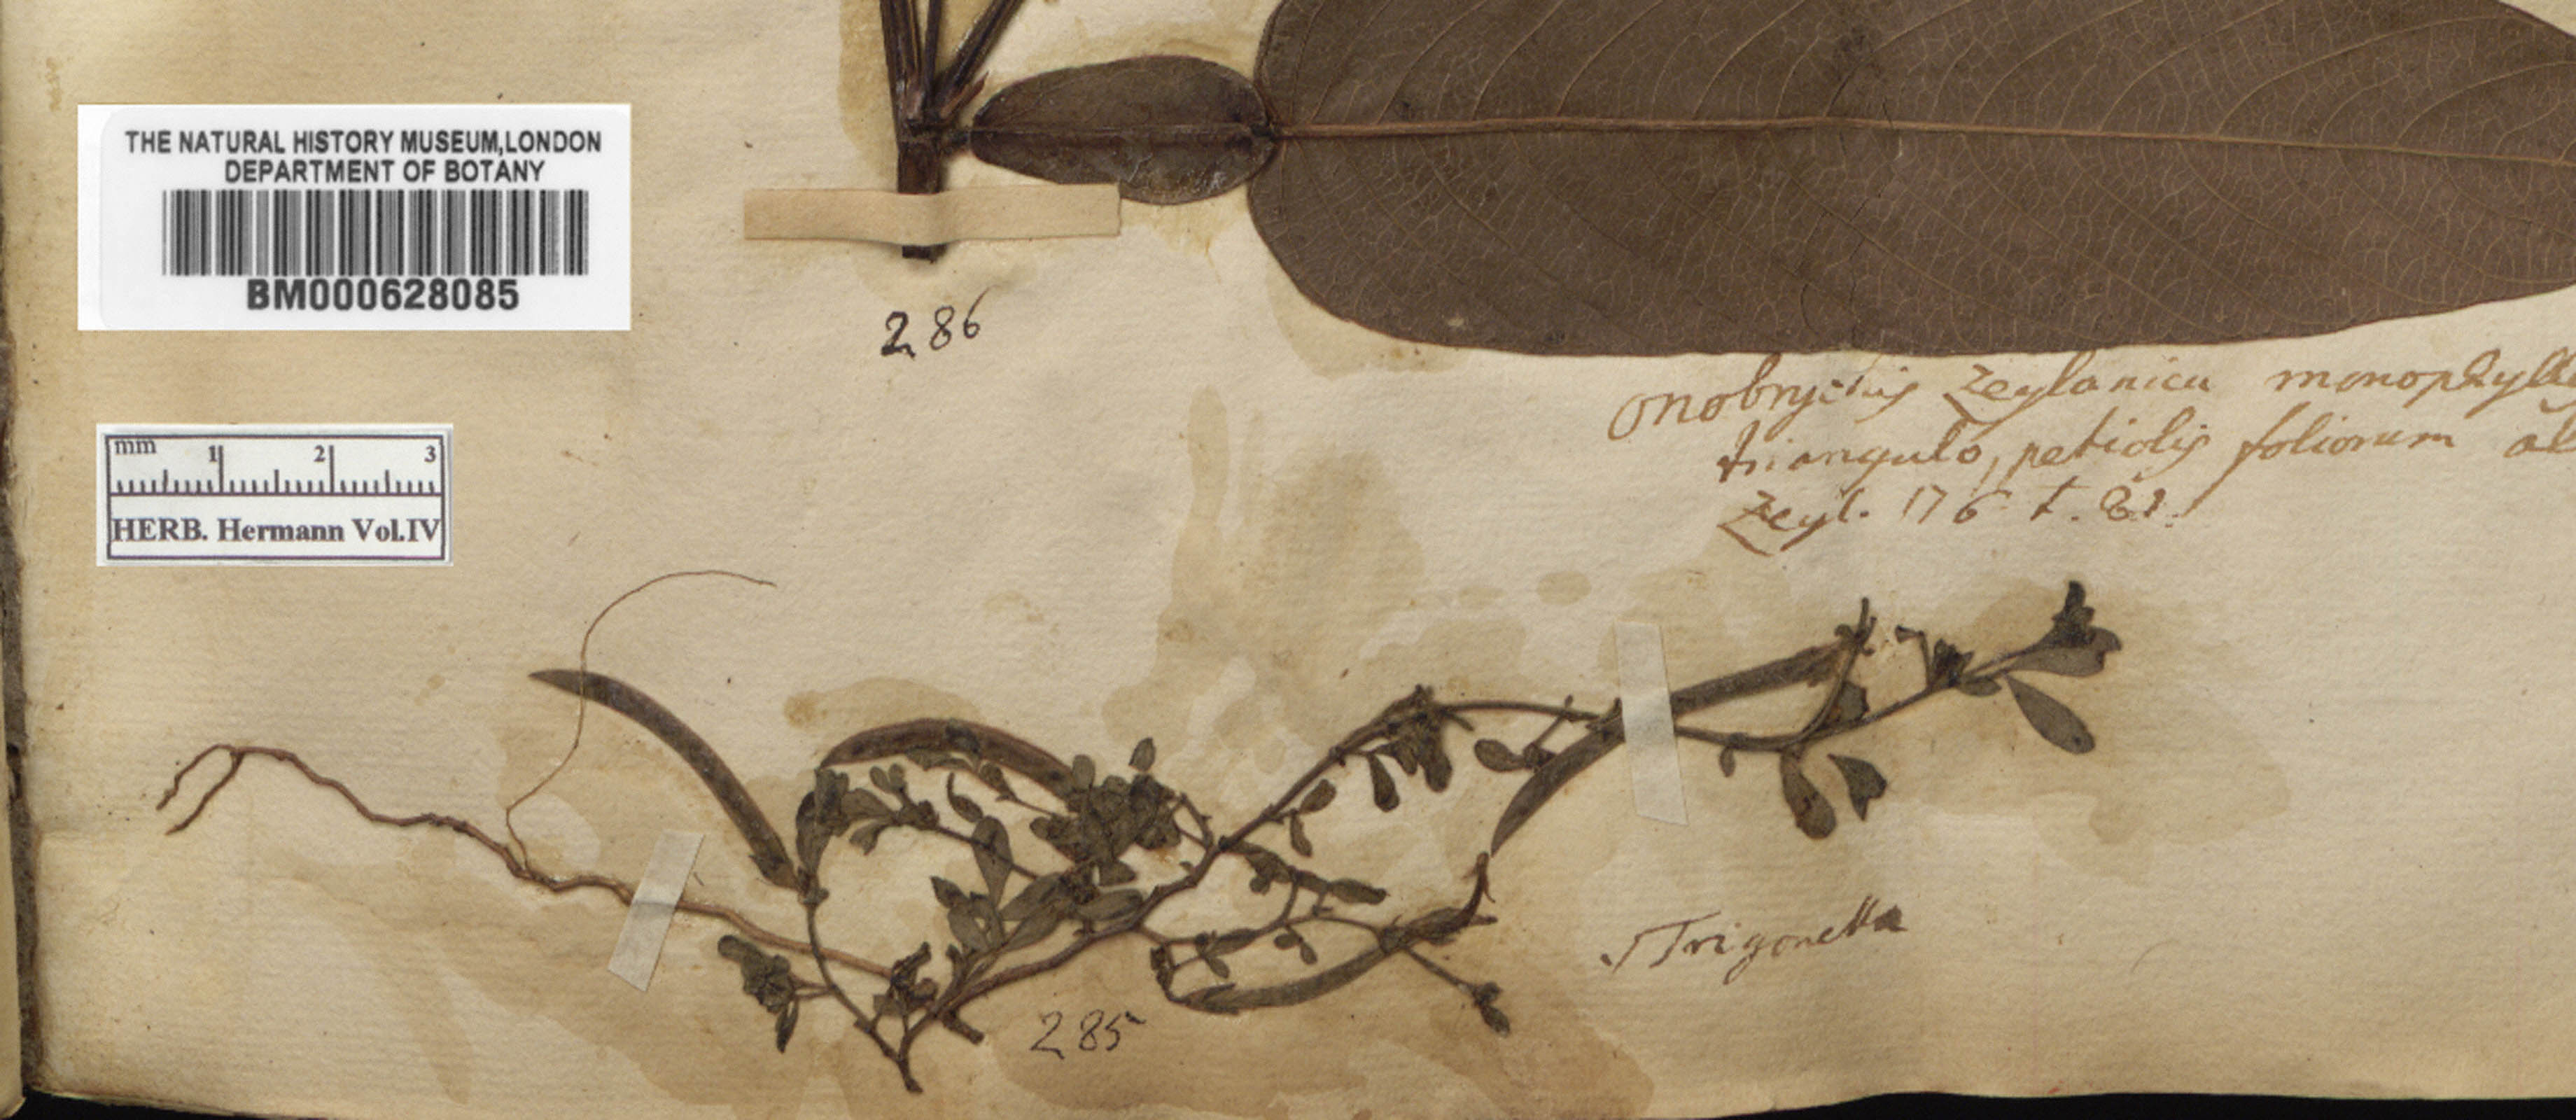 THE NATURAL HISTORY MUSEUM,LONDON
DEPARTMENT OF BOTANY
BM000628085
286
mm 1 2 3
HERB. Hermann Vol.IV
Onobrychis Zeylanica monophylla
triangulo, petiolis foliorum
Zeyl. 176 t. 81.
Trigonella
285